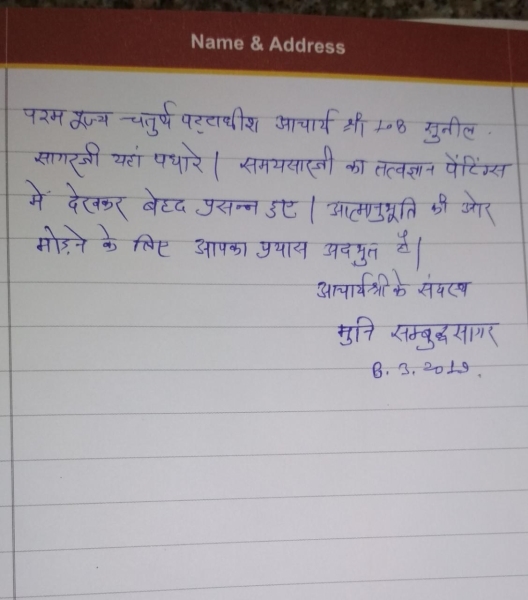 Name & Address
परम पूज्य चतुर्थ पट्टाधीश आचार्य श्री 108 सुनील
सागरजी यहां पधारे | समयसारजी का तत्वज्ञान पेंटिंग्स
में देखकर बेहद प्रसन्न हुए | आत्मानुभूति की ओर
मोड़ने के लिए आपका प्रयास अदभुत है |
आचार्यश्री के संघस्थ
मुनि सम्बुद्ध सागर
8.3.2019.